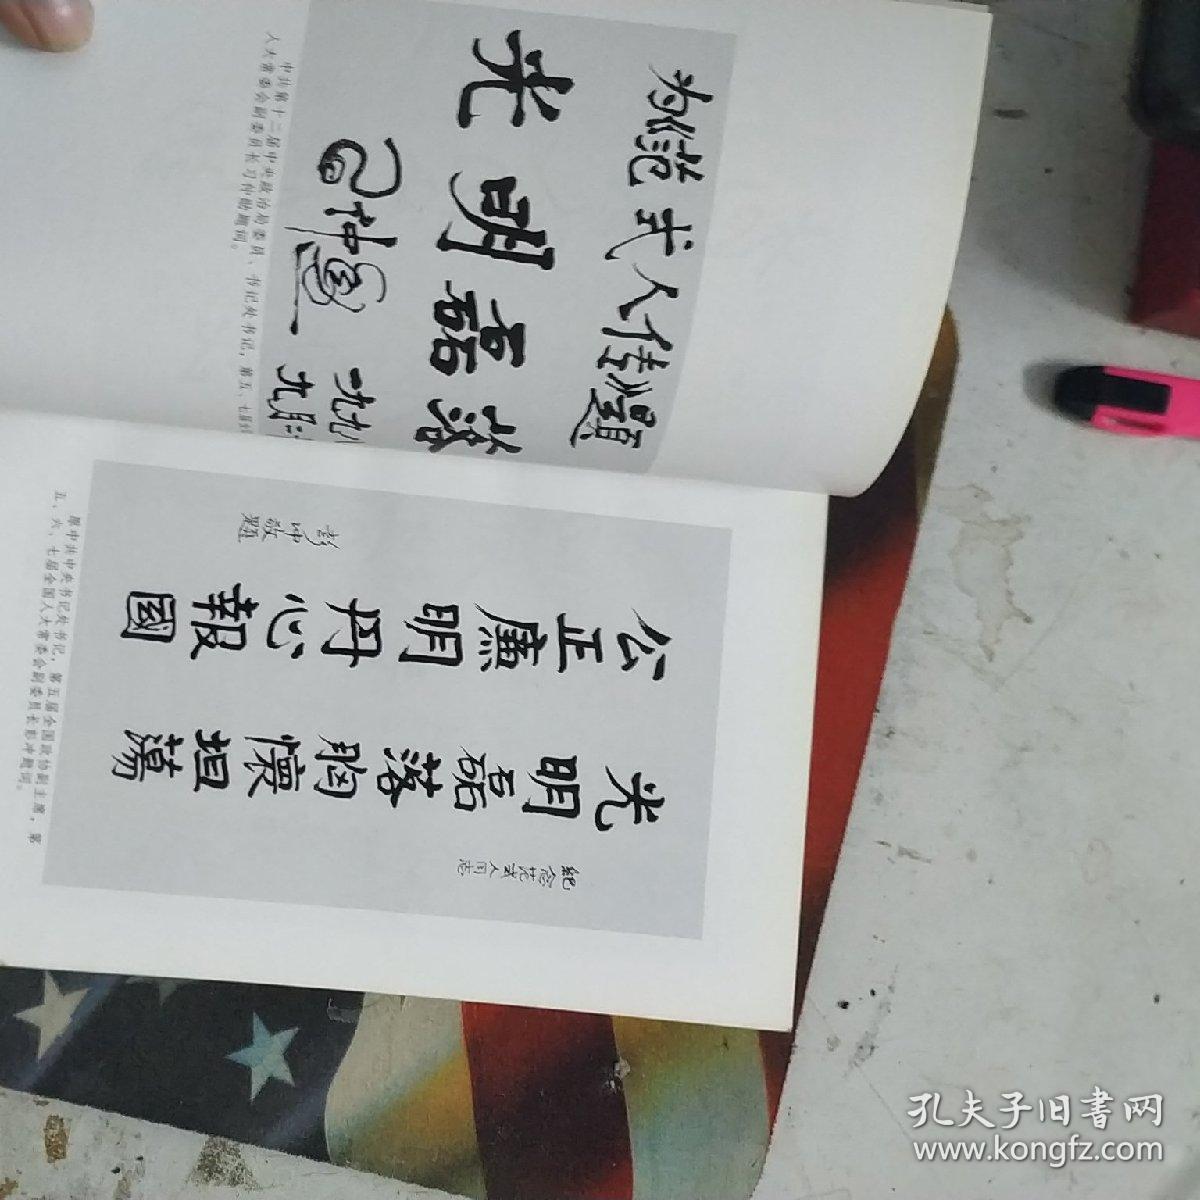 为范式人传题
光明磊落
习仲勋
一九九八
九月
中共第十二届中央政治局委员、书记处书记，第五、七届全
人大常委会副委员长习仲勋题词。
纪念范式人同志
光明磊落胸懷坦蕩
公正廉明丹心報國
彭冲敬题
原中共中央书记处书记，第五届全国政协副主席，第
五、六、七届全国人大常委会副委员长彭冲题词。
孔夫子旧書网
www.kongfz.com